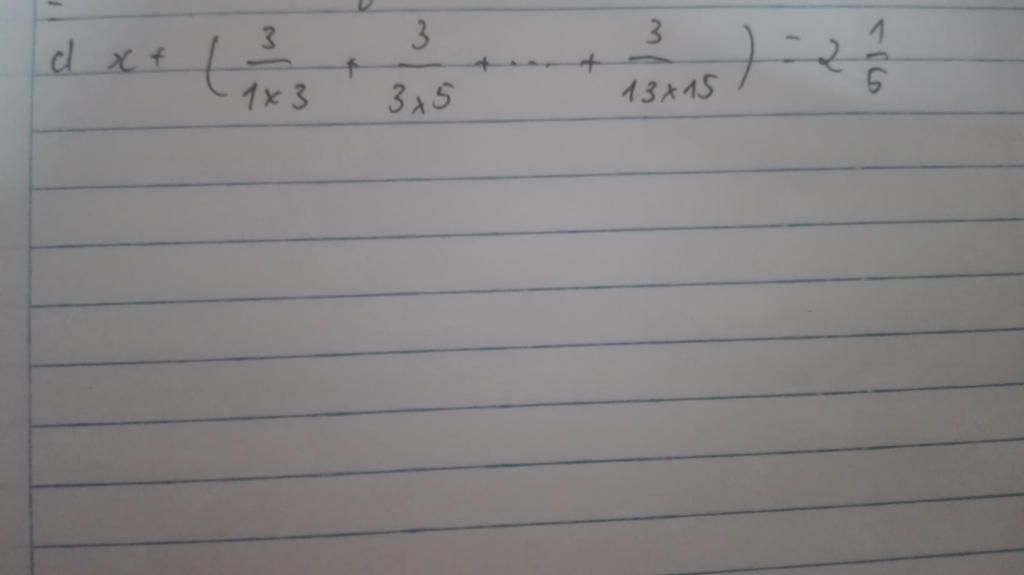 d x + ( 3/1×3 + 3/3×5 + ... + 3/13×15 ) = 2 1/5